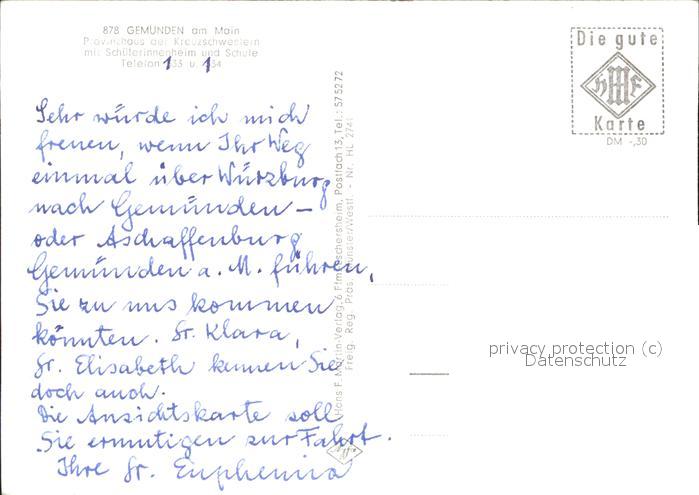 878 GEMÜNDEN am Main
Provinzhaus der Kreuzschwestern
mit Schülerinnenheim und Schule
Telefon 133 u. 134
Die gute
HMF
Karte
DM -,30
Sehr würde ich mich
freuen, wenn Ihr Weg
einmal über Würzburg
nach Gemünden –
oder Aschaffenburg
Gemünden a. M. führen,
Sie zu uns kommen
könnten. Sr. Klara,
Sr. Elisabeth kennen Sie
doch auch.
Die Ansichtskarte soll
Sie ermutigen zur Fahrt.
Ihre Sr. Euphemia
Hans F. Martin-Verlag, 6 Ffm.-Eschersheim, Postfach 13, Tel.: 57 52 72
Freig. Reg. Präs. Münster/Westf. - Nr. HL 274
privacy protection (c)
Datenschutz